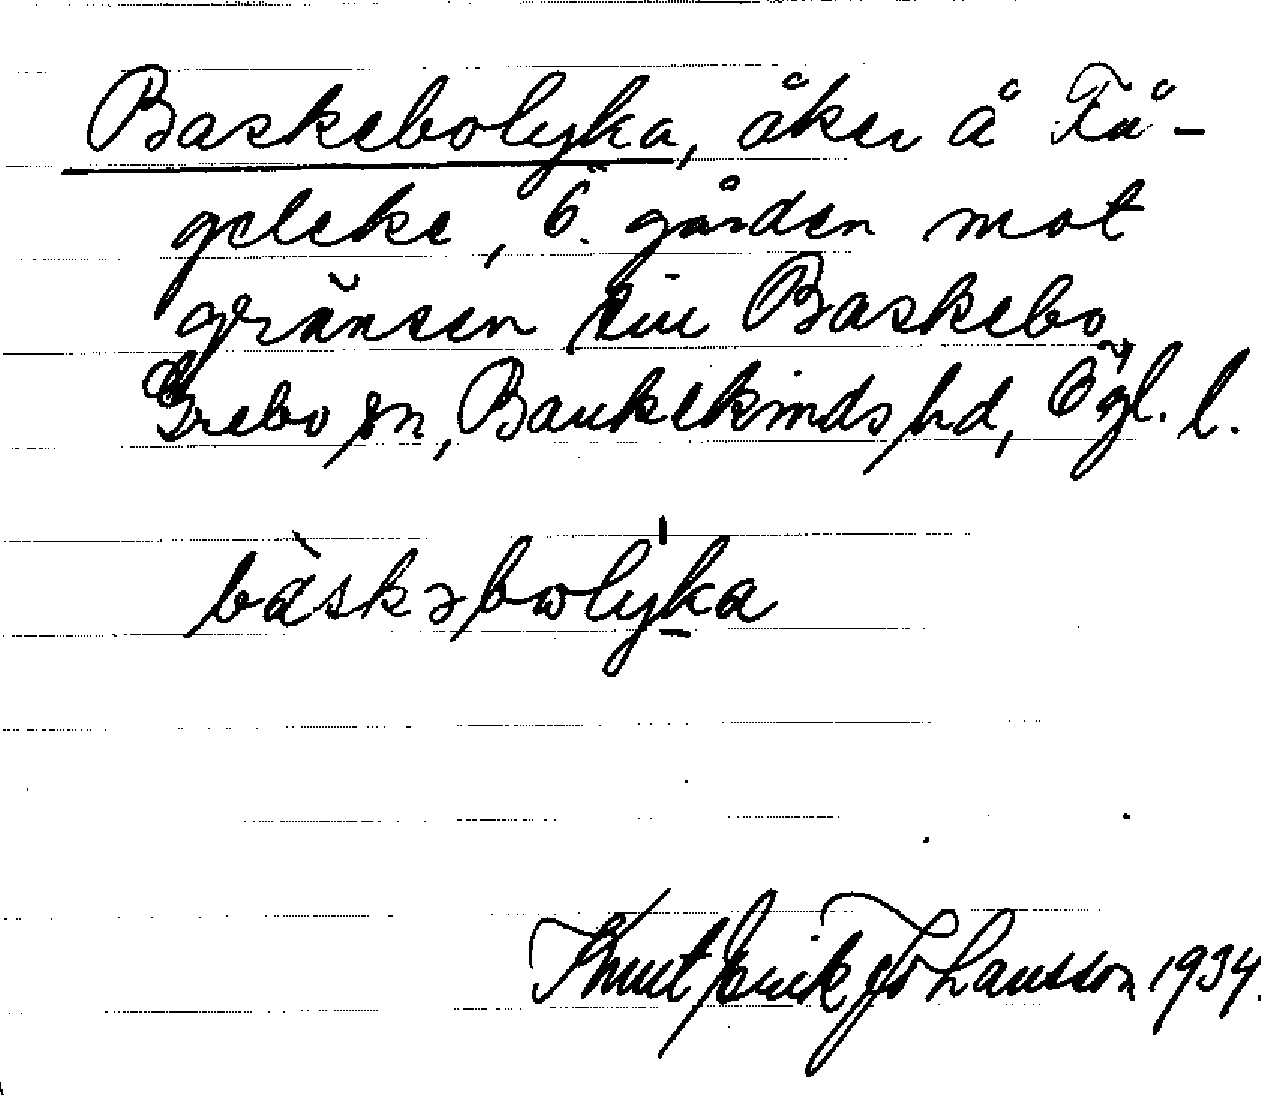 Baskebolyka, åker å Få-
geleke, Ö. gården mot
gränsen till Baskebo
Grebo sn, Bankekinds hd, Ögl. l.
bàskəbωlyka
Knut Erik Johansson 1934.